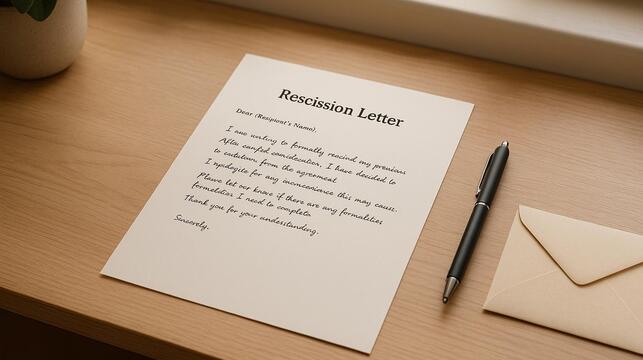 Rescission Letter
Dear (Recipient's Name),
I am writing to formally rescind my previous
After careful consideration, I have decided to
to from the agreement
I apologize for any inconvenience this may cause.
Please let our know if there are any formalities
formalities I need to complete.
Thank you for your understanding.
Sincerely,